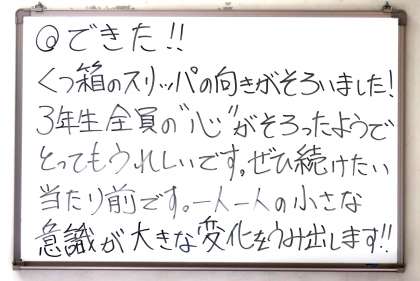 ◎できた!!
くつ箱のスリッパの向きがそろいました!
3年生全員の"心"がそろったようで
とってもうれしいです。ぜひ続けたい
当たり前です。一人一人の小さな
意識が大きな変化をうみ出します!!